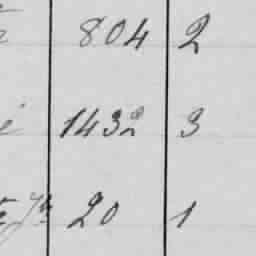 804 2
1432 3
20 1